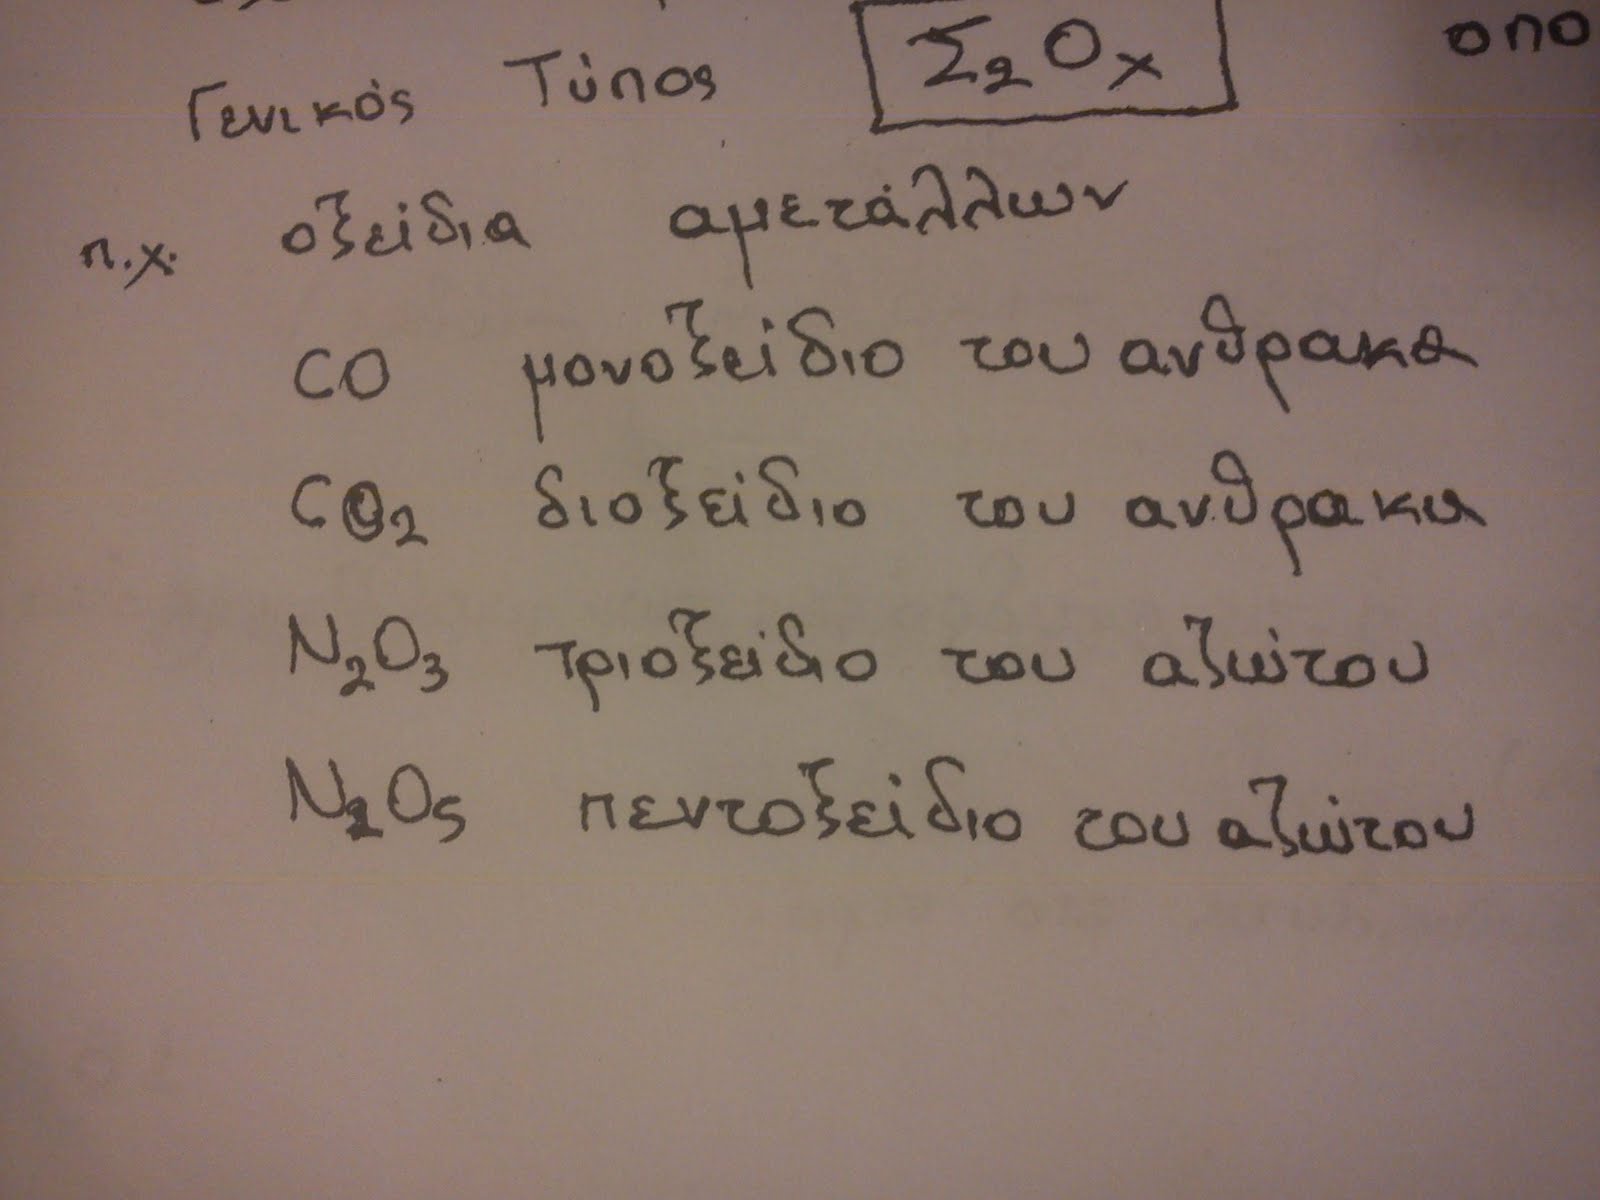 Γενικός Τύπος Σ₂Οx οπο
π.χ. οξείδια αμετάλλων
CO μονοξείδιο του ανθρακα
CO₂ διοξείδιο του ανθρακα
N₂O₃ τριοξείδιο του αζώτου
N₂O₅ πεντοξείδιο του αζώτου